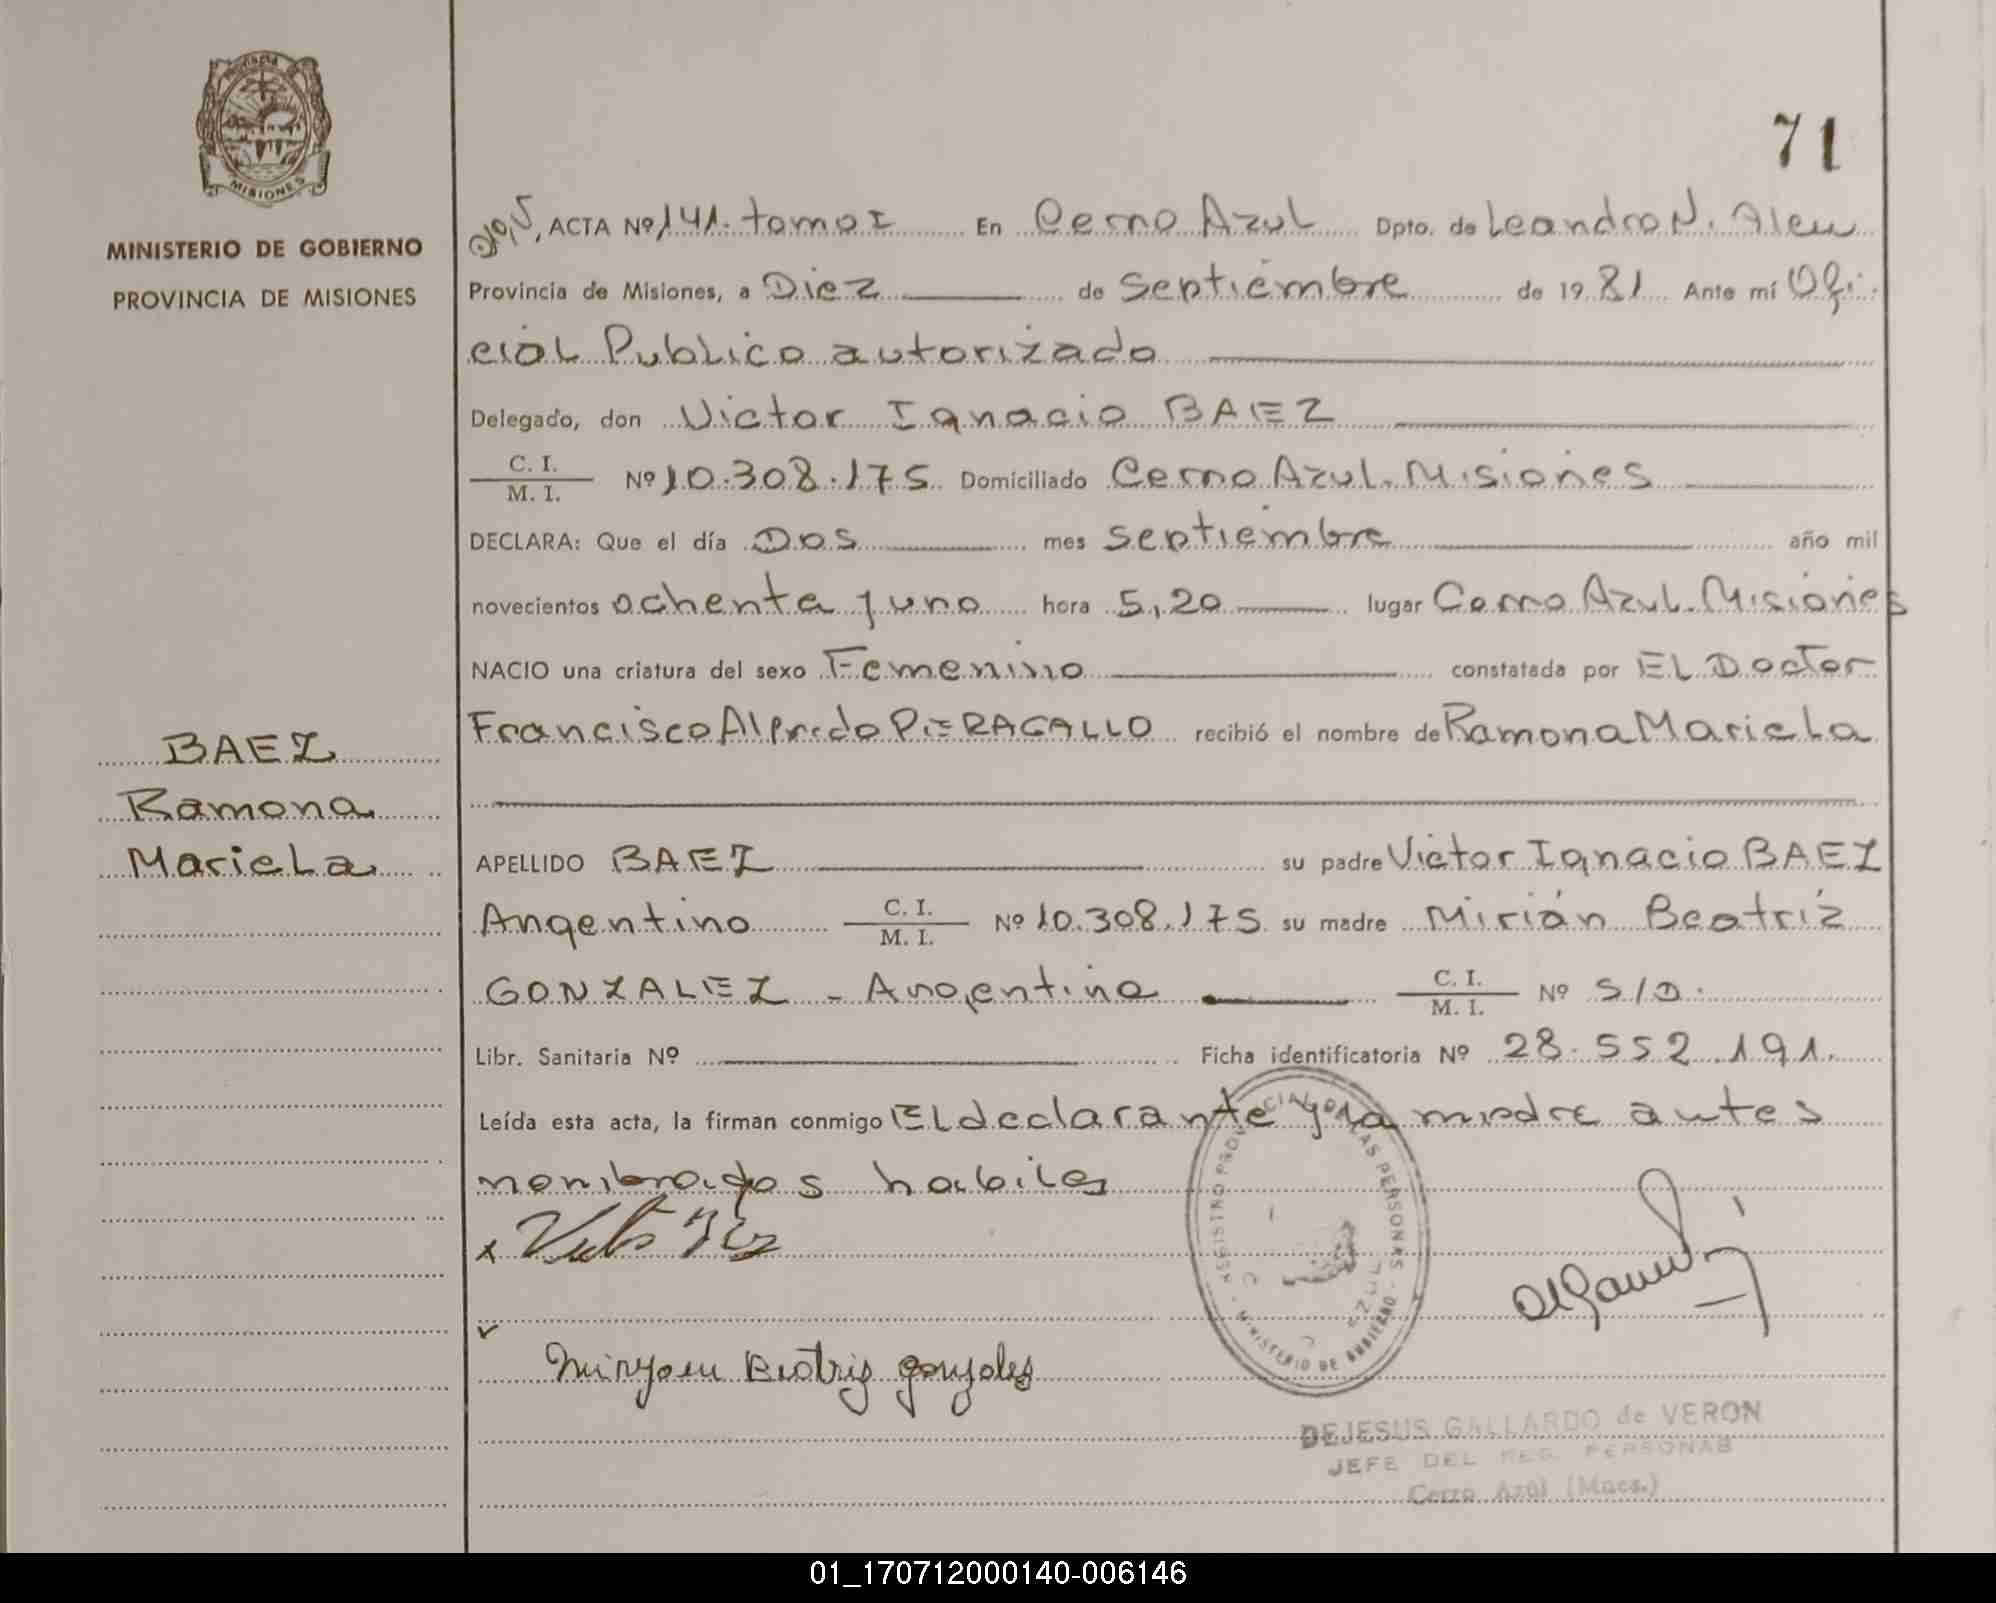 71
PROVINCIA DE
MISIONES
MINISTERIO DE GOBIERNO
PROVINCIA DE MISIONES
ACTA Nº 141. tomo I En Cerro Azul Dpto. de Leandro N. Alem
Provincia de Misiones, a Diez de Septiembre de 1981 Ante mí Ofi
cial Publico autorizado
Delegado, don Victor Ignacio BAEZ
C. I.
M. I. Nº 10.308.175 Domiciliado Cerro Azul. Misiones
DECLARA: Que el día Dos mes Septiembre año mil
novecientos ochenta y uno hora 5,20 lugar Cerro Azul. Misiones
NACIO una criatura del sexo Femenino constatada por EL Doctor
Francisco Alfredo PIERAGALLO recibió el nombre de Ramona Mariela
BAEZ
Ramona
Mariela
APELLIDO BAEZ su padre Victor Ignacio BAEZ
Argentino C. I.
M. I. Nº 10.308.175 su madre Mirián Beatriz
GONZALEZ - Argentina C. I.
M. I. Nº S/D.
Libr. Sanitaria Nº Ficha identificatoria Nº 28.552.191.
Leída esta acta, la firman conmigo EL declarante y la madre antes
nombrados habiles
REGISTRO PROVINCIAL DE LAS PERSONAS
MINISTERIO DE GOBIERNO
Miryam Beatriz gonzales
DEJESUS GALLARDO de VERON
JEFE DEL REG. PERSONAS
Cerro Azul (Mnes.)
01_170712000140-006146